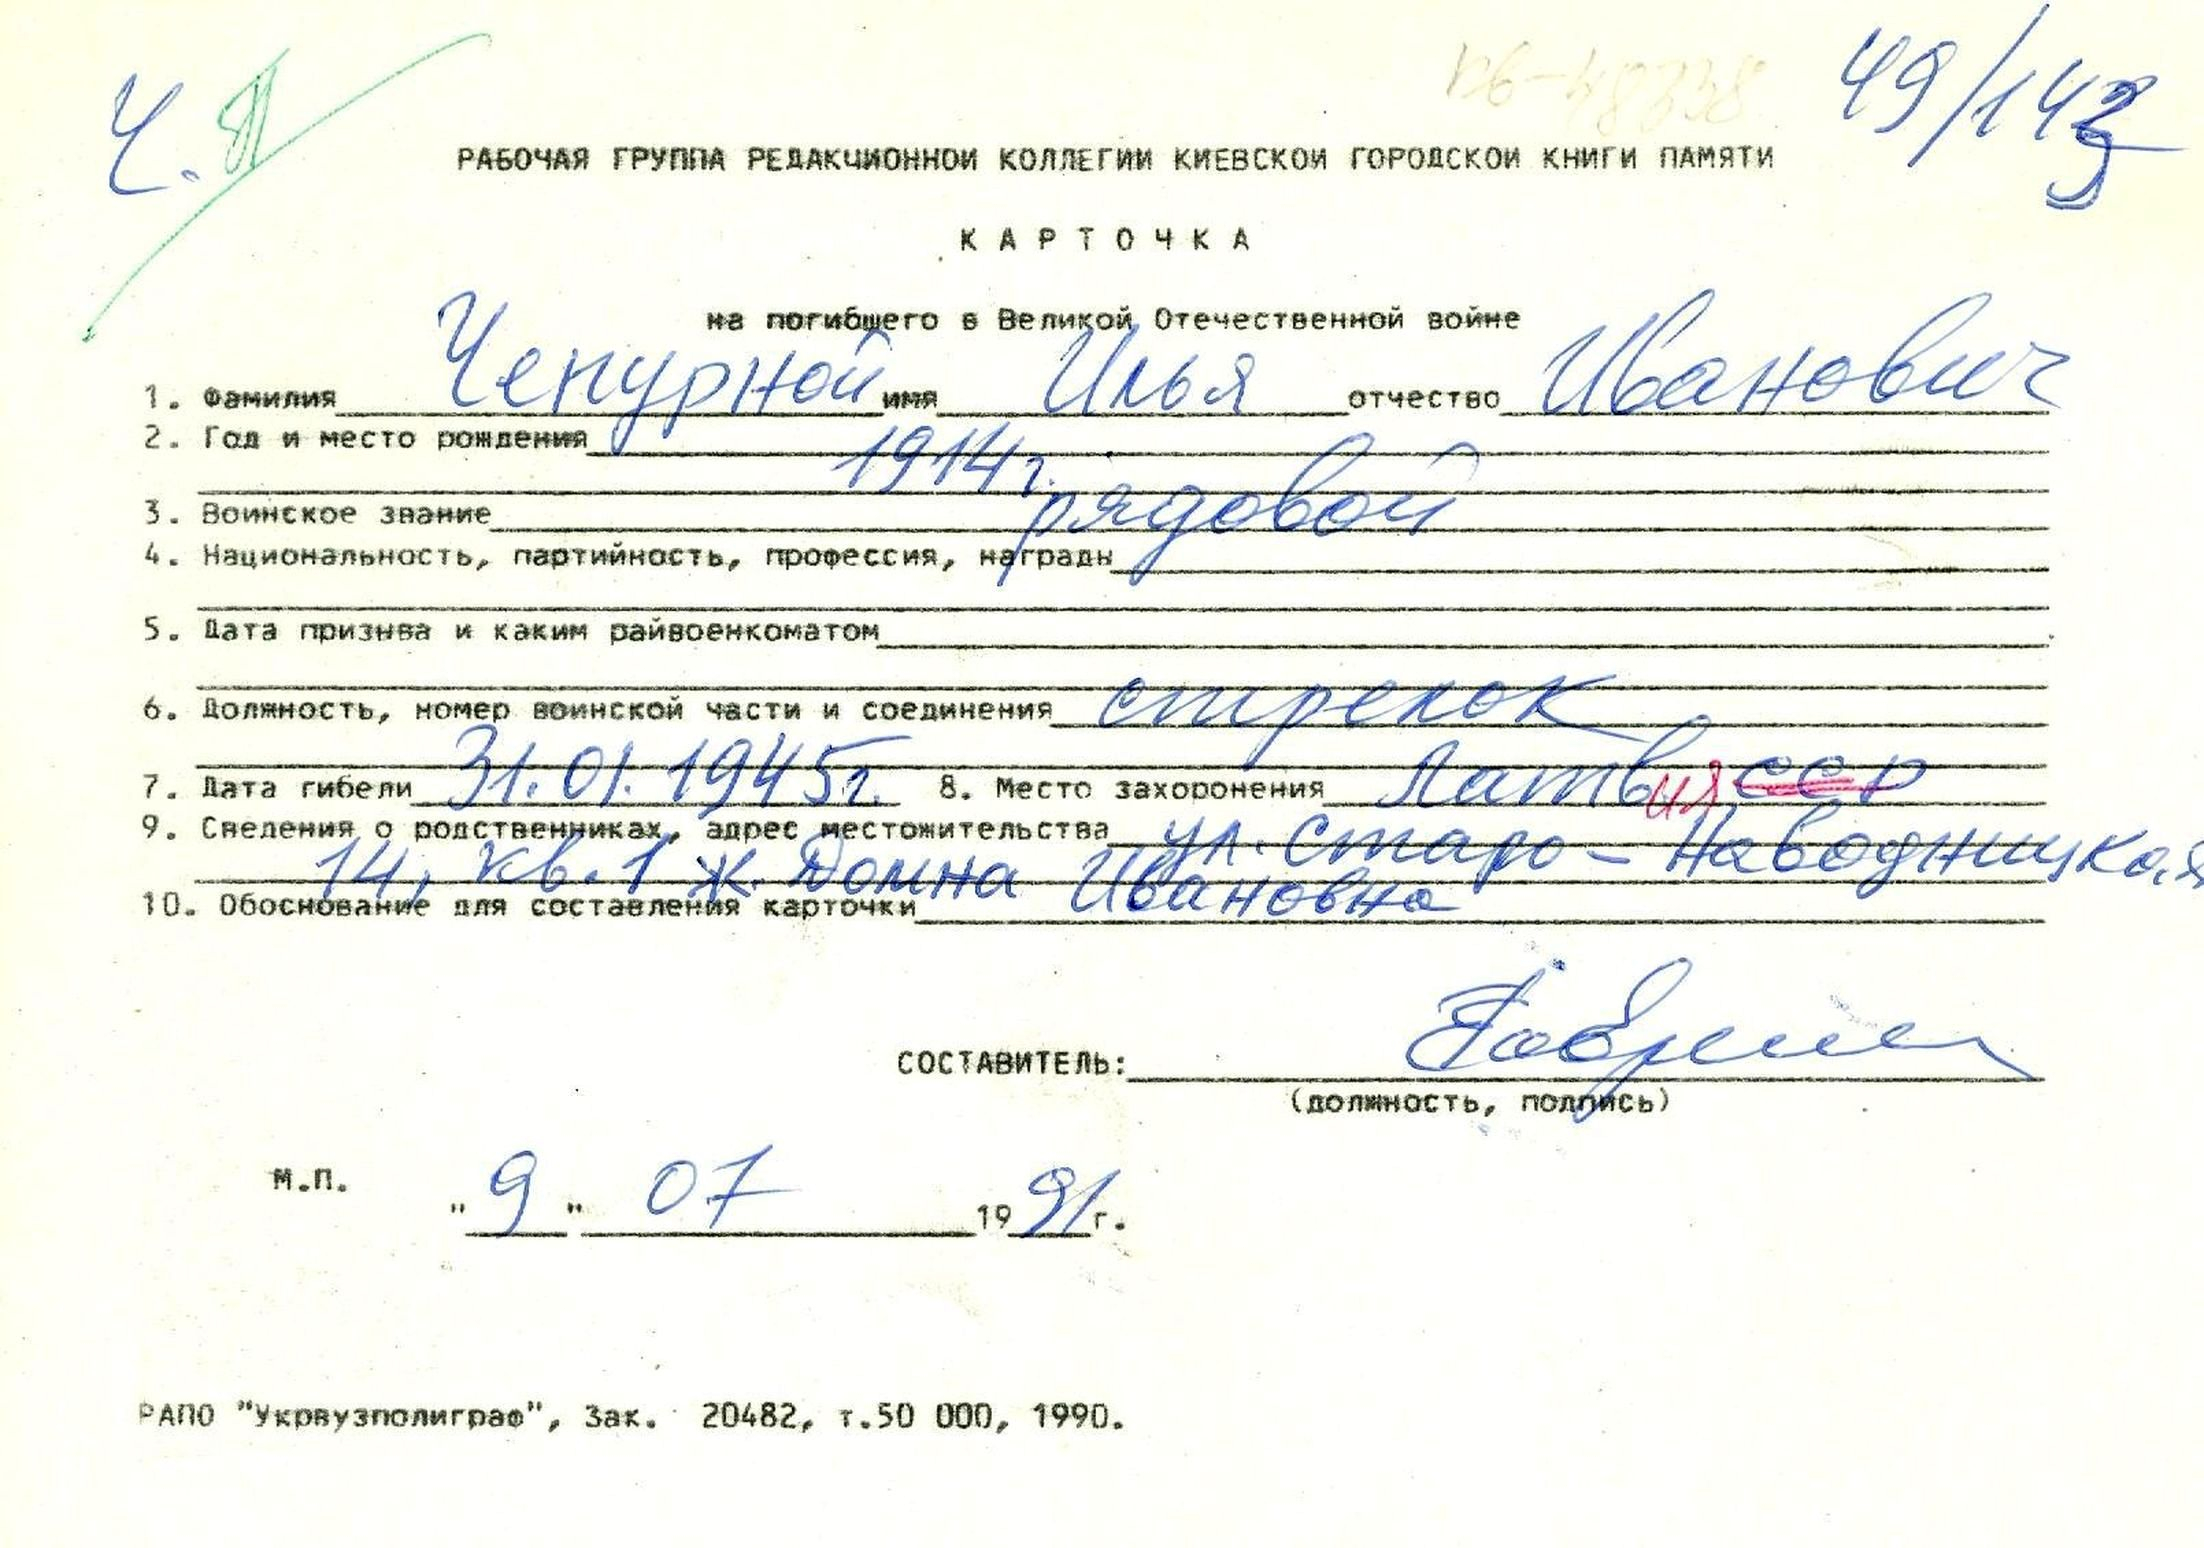 Ч.
49/143
РАБОЧАЯ ГРУППА РЕДАКЦИОННОЙ КОЛЛЕГИИ КИЕВСКОЙ ГОРОДСКОЙ КНИГИ ПАМЯТИ
КАРТОЧКА
на погибшего в Великой Отечественной войне
1. Фамилия Чепурной имя Илья отчество Иванович
2. Год и место рождения 1914 г.
3. Воинское звание рядовой
4. Национальность, партийность, профессия, награды
5. Дата призыва и каким райвоенкоматом
6. Должность, номер воинской части и соединения стрелок
7. Дата гибели 31.01.1945г. 8. Место захоронения Латвия ССР
9. Сведения о родственниках, адрес местожительства ул. Старо-Наводницкая
14, кв.1 ж. Домна Ивановна
10. Обоснование для составления карточки
СОСТАВИТЕЛЬ:
(должность, подпись)
М.П.
"9" 07 1991г.
РАПО "Укрвузполиграф", Зак. 20482, т.50 000, 1990.